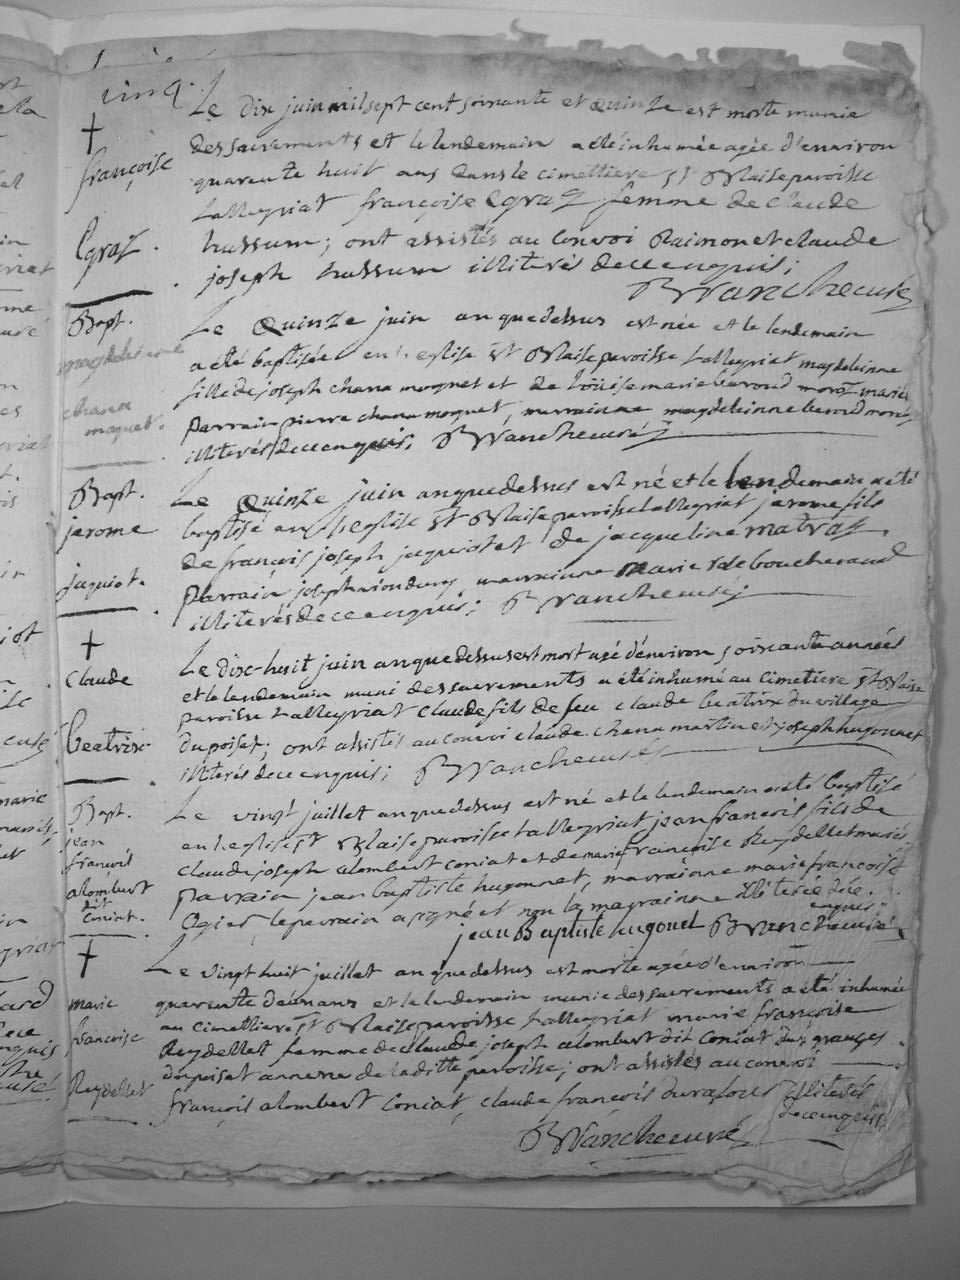 cinq.
†
françoise
Egraz.
Le dix juin mil sept cent soixante et Quinze est morte munie
des sacrements et le lendemain a été inhumée agée d'environ
quarente huit ans dans le cimettiere st Blaise paroisse
tallegriat françoise Egraz femme de claude
hussum; ont assistés au Convoi Raimond et claude
joseph hussum illiterés de ce enquis;
B Vian cheeuré
Bapt.
magdeleinne
chana
moquet.
Le Quinze juin an que dessus est née et le lendemain
a été baptisée en l'eglise st Blaise paroisse tallegriat magdeleinne
fille de joseph chana moquet et de Louise marie beroud mariés
parrain pierre chana moquet, marrainne magdeleinne beroud
illiterés de ce enquis; B Vian cheeuré
Bapt.
jerome
jaquiot.
Le Quinze juin an que dessus est né et le lendemain a été
baptisé en l'eglise st Blaise paroisse tallegriat jerome fils
de françois joseph jaquiot et de jacqueline matraz.
parrain joseph, marrainne marie
illiterés de ce enquis; B Vian cheeuré
†
Claude
beatrix
Le dix-huit juin an que dessus est mort agé d'environ soixante années
et le lendemain muni des sacrements a été inhumé au Cimetiere st Blaise
paroisse tallegriat claude fils de feu claude beatrix du village
du poiset; ont assistés au convoi claude chana martin et joseph hugonnet
illiterés de ce enquis; B Vian cheeuré
Bapt.
jean
françois
alombert
dit
Coniat.
Le vingt juillet an que dessus est né et le lendemain a été baptisé
en l'eglise st Blaise paroisse tallegriat jean françois fils de
claude joseph alombert coniat et de marie françoise Reydellet mariés
parrain jean baptiste hugonnet, marrainne marie françoise
Ogier, le parrain a signé et non la marrainne illiterée de ce
enquis;
jean Baptiste hugonet B Vian cheeuré
†
marie
francoise
Reydellet
Le vingt huit juillet an que dessus est morte agée d'environ
quarente deux ans et le lendemain munie des sacrements a été inhumée
au cimettiere st Blaise paroisse tallegriat marie françoise
Reydellet femme de claude joseph alombert dit Coniat des granges
du poiset annexe de la ditte paroisse; ont assistés au convoi
françois alombert Coniat, claude françois durafour illiterés
de ce enquis
B Vian cheeuré